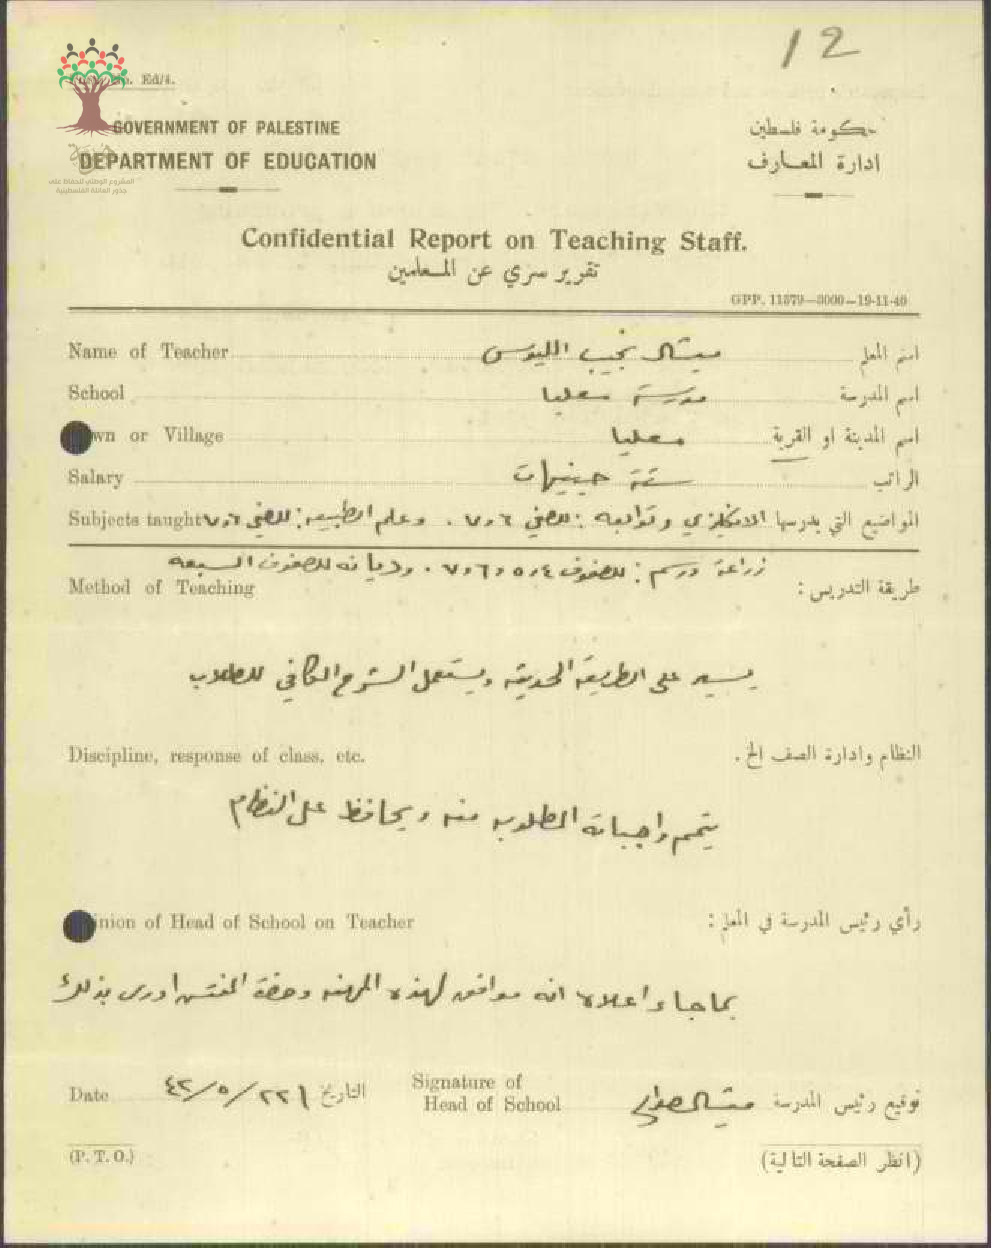 12
No. Ed/4.
GOVERNMENT OF PALESTINE
حكومة فلسطين
DEPARTMENT OF EDUCATION
ادارة المعارف
المشروع الوطني للحفاظ على
جذور العائلة الفلسطينية
Confidential Report on Teaching Staff.
تقرير سري عن المعلمين
GPP. 11379—3000—19-11-40
Name of Teacher ميشال نجيب الليوس اسم المعلم
School مدرسة معليا اسم المدرسة
wn or Village معليا اسم المدينة او القرية
Salary ستة جنيهات الراتب
Subjects taught المواضيع التي يدرسها الانكليزي وتوابعه : للصفي ٦ و٧ . وعلم الطبيعه : للصفي ٦ و٧
زراعة ورسم : للصفوف ٤ و٥ و٦ و٧ . وديانه للصفوف السبعه
Method of Teaching طريقة التدريس :
يسير على الطريقه الحديثه ويستعمل الشرح الكافي للطلاب
Discipline, response of class, etc. النظام وادارة الصف الخ .
يتمم واجباته المطلوبه منه ويحافظ على النظام
inion of Head of School on Teacher رأي رئيس المدرسة في المعلم :
بما جاء اعلاه انه موافق لهذه المهنه وحضرة المفتش ادرى بذلك
Date ٤٢/٥/٢٢ التاريخ
Signature of
Head of School ميشال توقيع رئيس المدرسة
(P. T. O.) (انظر الصفحة التالية)